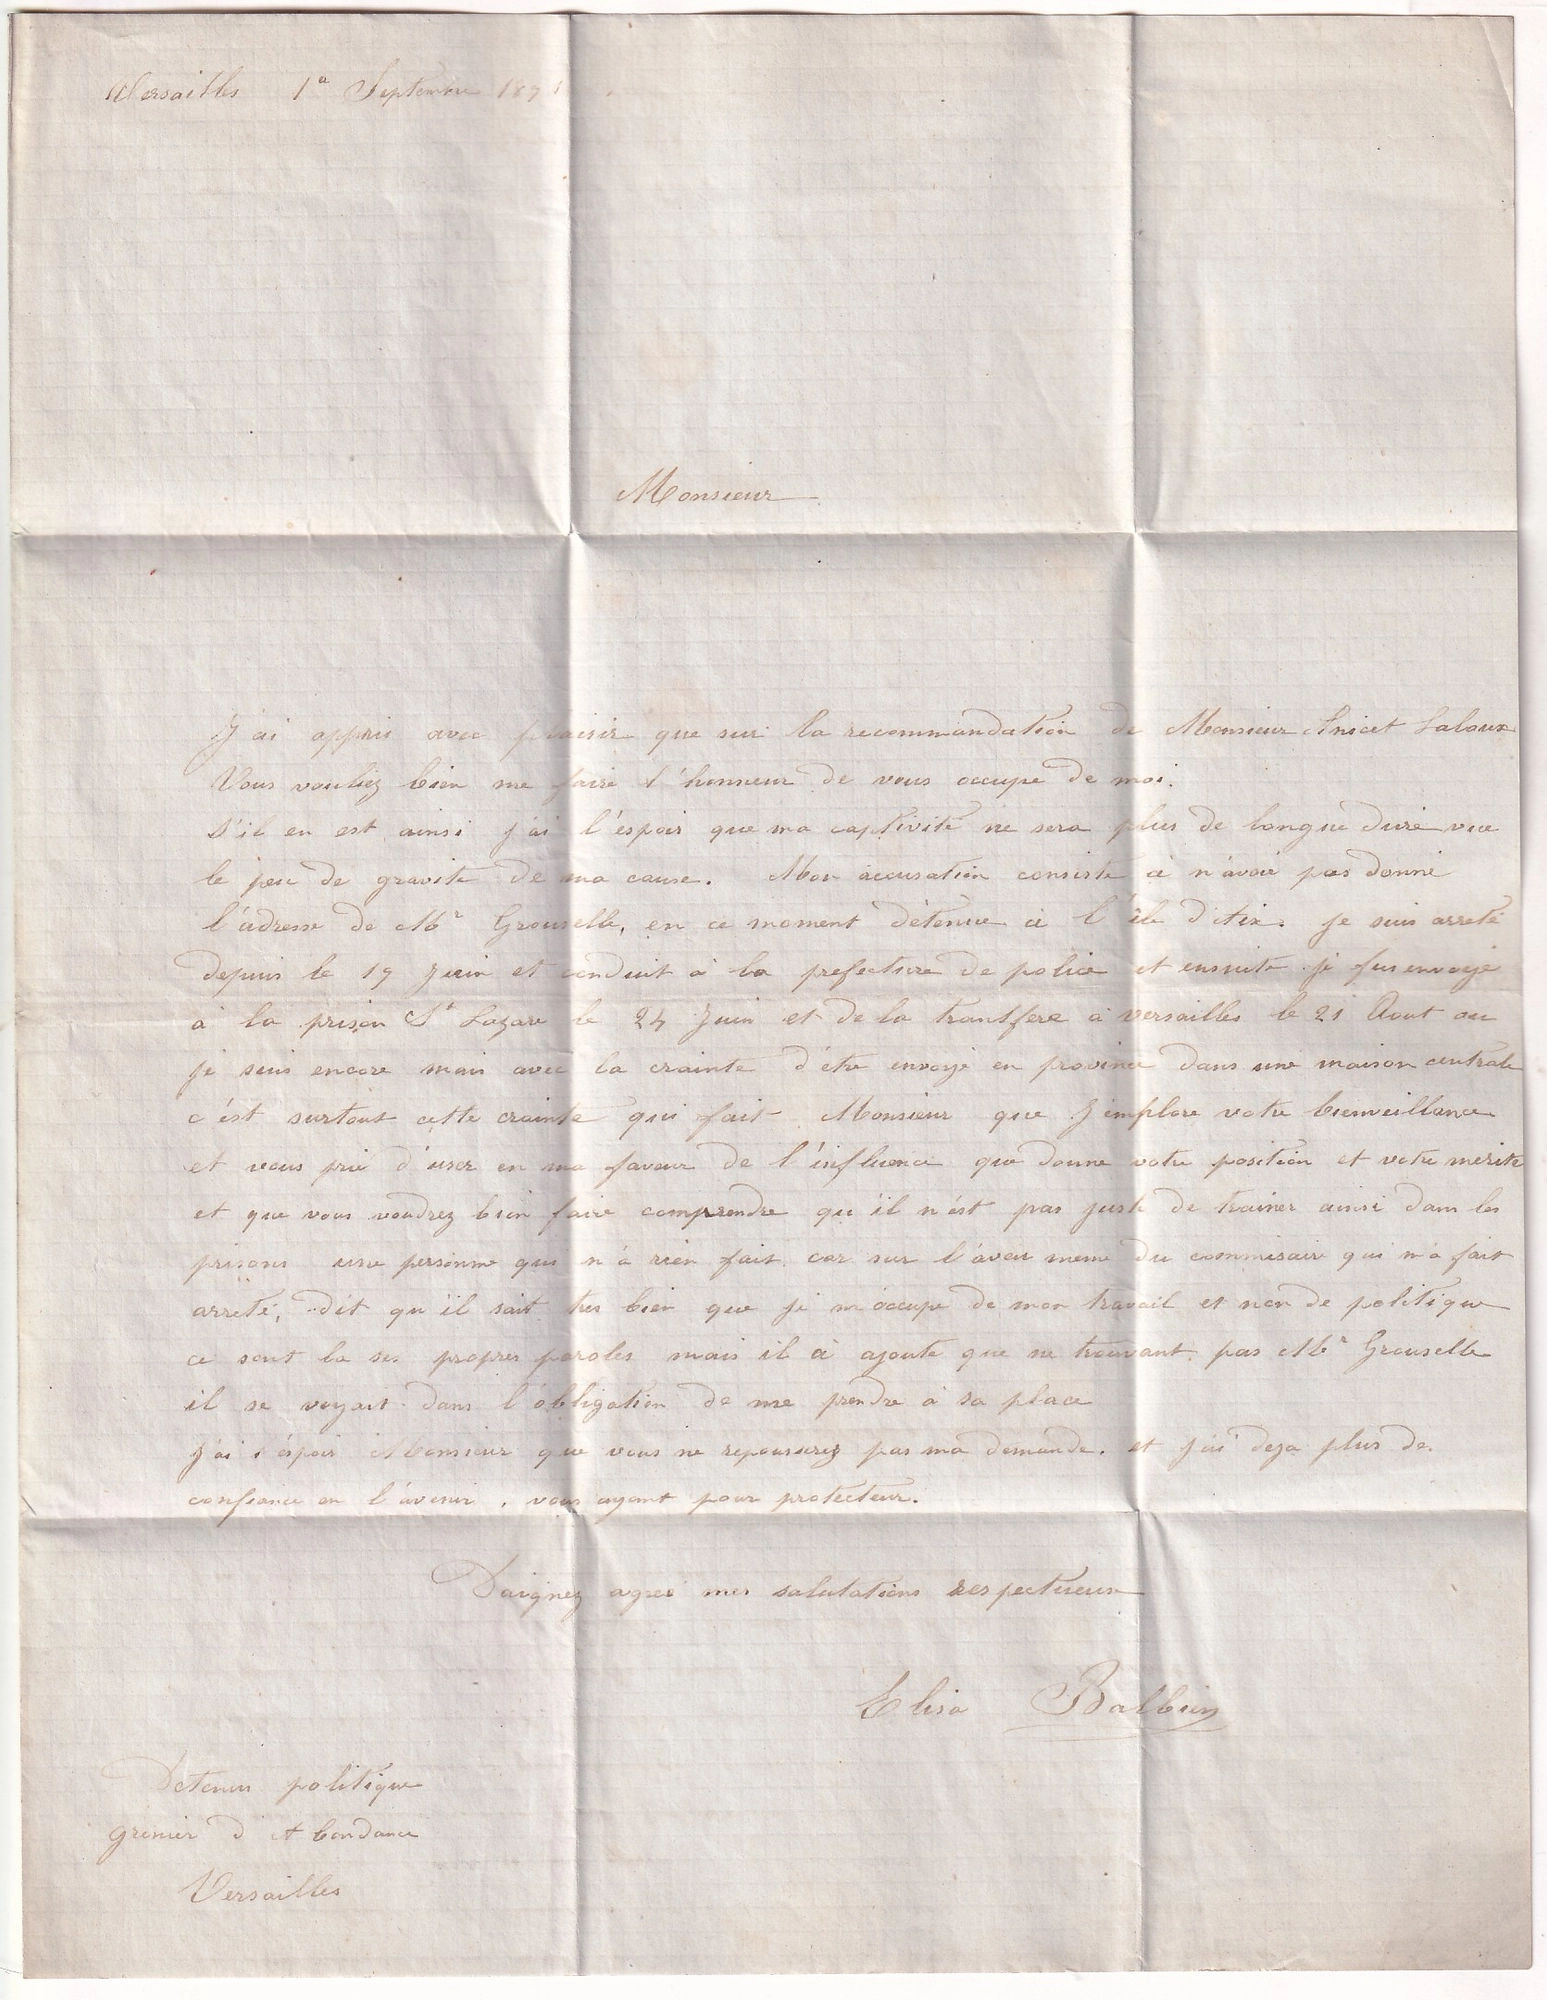 Versailles 1er Septembre 1871
Monsieur
J'ai appris avec plaisir que sur la recommandation de Monsieur Anicet Laloux
Vous vouliez bien me faire l'honneur de vous occupe de moi.
S'il en est ainsi j'ai l'espoir que ma captivité ne sera plus de longue durée vue
le peu de gravité de ma cause. Mon accusation consiste à n'avoir pas donné
l'adresse de Mr Grouselle, en ce moment détenue à l'île d'Aix. Je suis arreté
depuis le 19 Juin et conduit à la prefecture de police et ensuite je fus envoyé
à la prison St Lazare le 24 Juin et de la transfere à versailles le 21 Aout ou
je suis encore mais avec la crainte d'être envoyé en province dans une maison centrale
c'est surtout cette crainte qui fait Monsieur que J'emplore votre bienveillance
et vous prie d'user en ma faveur de l'influence que donne votre position et votre mérite
et que vous voudrez bien faire comprendre qu'il n'est pas juste de trainer ainsi dans les
prisons une personne qui n'a rien fait car sur l'aveu meme du commisaire qui m'a fait
arreté, dit qu'il sait tres bien que je m'occupe de mon travail et non de politique
ce sont la ses propres paroles mais il à ajoute que ne trouvant pas Mr Grouselle
il se voyait dans l'obligation de me prendre à sa place
J'ai l'espoir Monsieur que vous ne repousserez pas ma demande. et j'ai deja plus de
confiance en l'avenir, vous ayant pour protecteur.
Daignez agreé mes salutations respectueux
Elisa Balbein
Detenus politique
grenier d'Abondance
Versailles